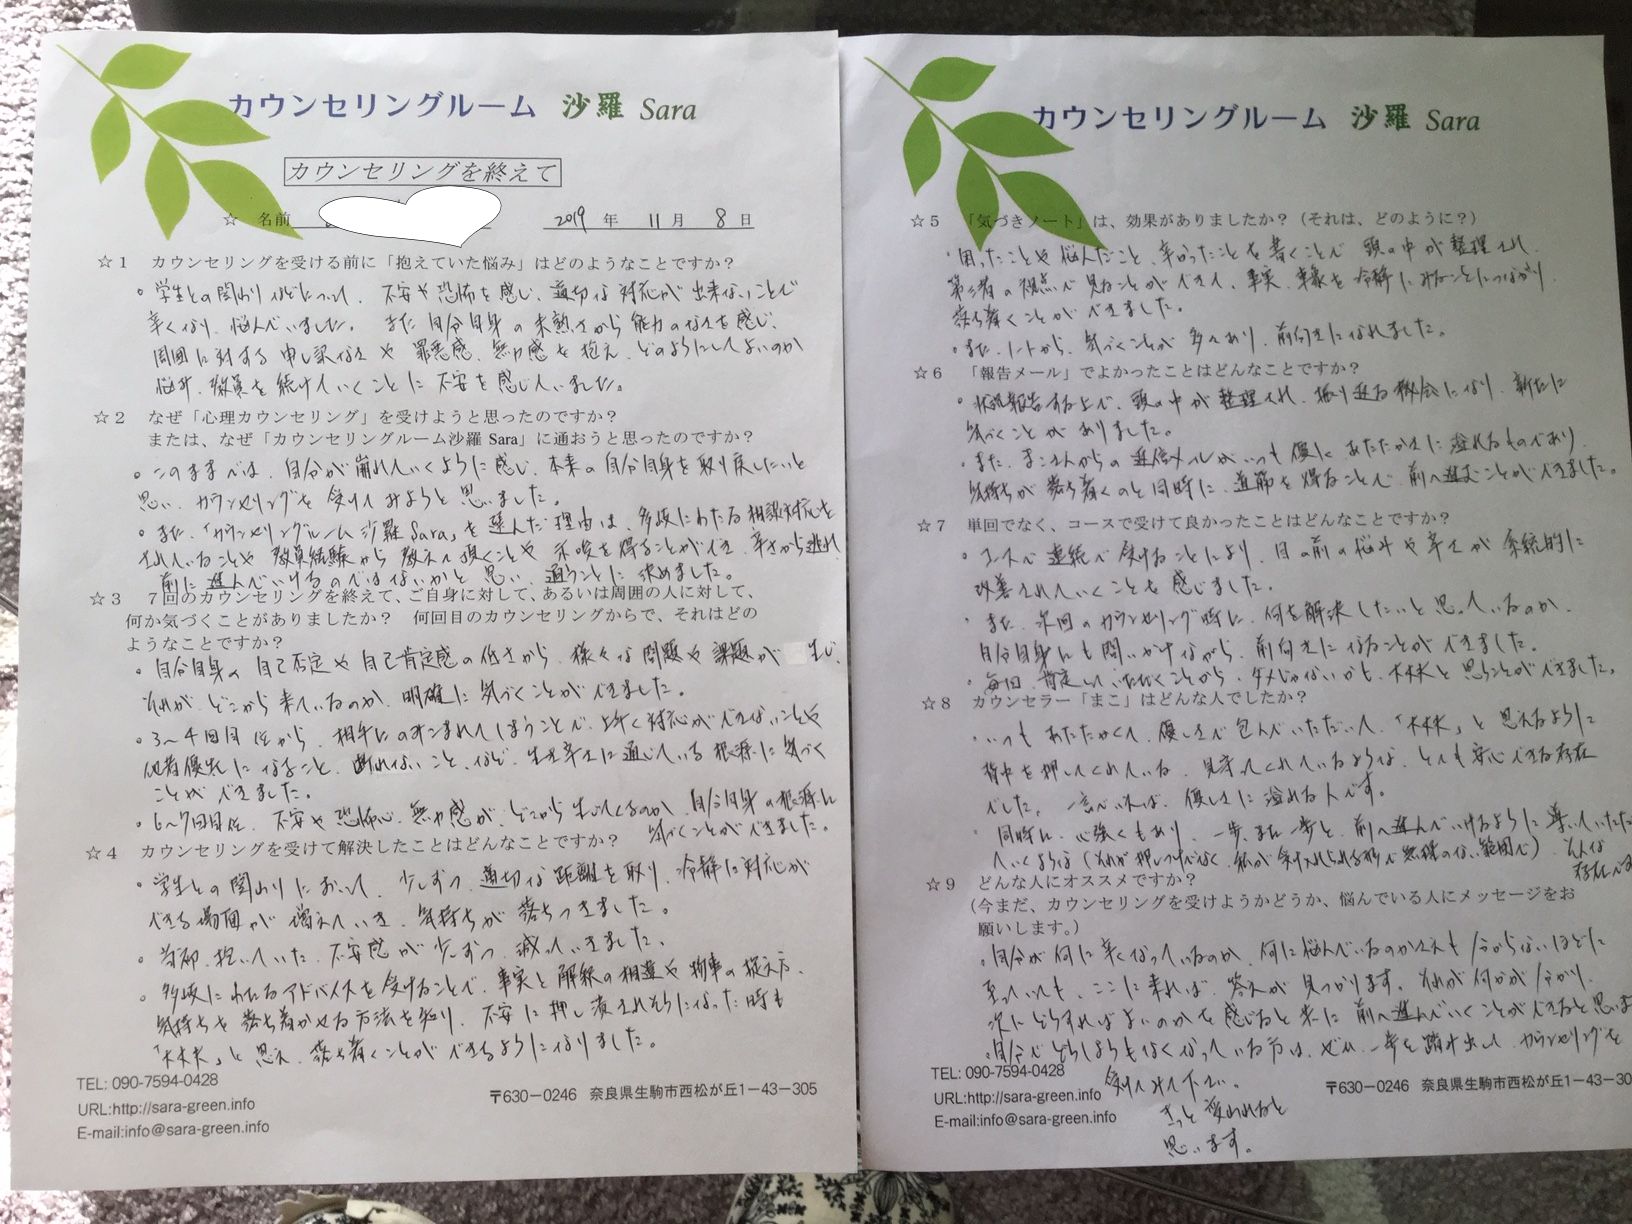 カウンセリングルーム 沙羅 Sara
カウンセリングを終えて
☆ 名前 2019 年 11 月 8 日
☆1 カウンセリングを受ける前に「抱えていた悩み」はどのようなことですか？
・学生との関わりなどについて、不安や恐怖を感じ、適切な対応が出来ないことで
辛くなり、悩んでいました。また自分自身の未熟さから能力のなさを感じ、
周囲に対する申し訳なさや罪悪感、無力感を抱え、どのようにしてよいのか
悩み、教員を続けていくことに不安を感じていました。
☆2 なぜ「心理カウンセリング」を受けようと思ったのですか？
または、なぜ「カウンセリングルーム沙羅 Sara」に通おうと思ったのですか？
・このままでは、自分が崩れていくように感じ、本来の自分自身を取り戻したいと
思い、カウンセリングを受けてみようと思いました。
・また、「カウンセリングルーム沙羅Sara」を選んだ理由は、多岐にわたる相談対応を
されていることや教員経験から教えて頂くことや示唆を得ることができ、辛さから逃れ
前に進んでいけるのではないかと思い、通うことに決めました。
☆3 7回のカウンセリングを終えて、ご自身に対して、あるいは周囲の人に対して、
何か気づくことがありましたか？ 何回目のカウンセリングからで、それはどの
ようなことですか？
・自分自身の自己否定や自己肯定感の低さから、様々な問題や課題が生じ、
それが、どこから来ているのか、明確に気づくことができました。
・3〜4回目位から、相手にのみこまれてしまうことで、上手く対応ができないことや
他者優先になること、断れないこと、など、生き辛さに通じている根源に気づく
ことができました。
・6〜7回目位、不安や恐怖心、無力感が、どこから生じてくるのか、自分自身の根源に
気づくことができました。
☆4 カウンセリングを受けて解決したことはどんなことですか？
・学生との関わりにおいて、少しずつ、適切な距離を取り、冷静に対応が
できる場面が増えていき、気持ちが落ちつきました。
・当初、抱いていた、不安感が少しずつ、減っていきました、
・多岐にわたるアドバイスを受けることで、事実と解釈の相違や物事の捉え方、
気持ちを落ち着かせる方法を知り、不安に押し潰されそうになった時も
「大丈夫」と思え、落ち着くことができるようになりました。
TEL: 090-7594-0428
URL:http://sara-green.info
E-mail:info@sara-green.info
〒630－0246 奈良県生駒市西松が丘1－43－305
カウンセリングルーム 沙羅 Sara
☆5 「気づきノート」は、効果がありましたか？（それは、どのように？）
・困ったことや悩んだこと、辛かったことを書くことで頭の中が整理され、
第三者の視点で見ることができて、事実、事象を冷静にみることにつながり、
落ち着くことができました。
・また、ノートから、気づくことが多々あり、前向きになれました。
☆6 「報告メール」でよかったことはどんなことですか？
・状況報告する上で、頭の中が整理され、振り返る機会になり、新たに
気づくことがありました。
・また、まこさんからの返信メールがいつも優しくあたたかさに溢れるものであり、
気持ちが落ち着くのと同時に、道筋を得ることで、前へ進むことができました。
☆7 単回でなく、コースで受けて良かったことはどんなことですか？
・コースで連続で受けることにより、目の前の悩みや辛さが系統的に
改善されていくことを感じました。
・また、次回のカウンセリング時に、何を解決したいと思っているのか、
自分自身にも問いかけながら、前向きになることができました。
・毎回、肯定していただくことから、ダメじゃないかも、大丈夫と思うことができました。
☆8 カウンセラー「まこ」はどんな人でしたか？
・いつもあたたかくて、優しさで包んでいただいて、「大丈夫」と思えるように
背中を押してくれている、見守ってくれているような、とても安心できる存在
でした。一言でいえば、優しさに溢れる人です。
同時に、心強くもあり、一歩、また一歩と、前へ進んでいけるように導いていただ
いているような（それが押しつけでなく、私が受け入れられる形で無理のない範囲で）、そんな
存在です
☆9 どんな人にオススメですか？
（今まだ、カウンセリングを受けようかどうか、悩んでいる人にメッセージをお
願いします。）
・自分が何に辛くなっているのか、何に悩んでいるのかさえも分からないほどに
至っていても、ここに来れば、答えが見つかります。それが何かが分かり、
次にどうすればよいのかを感じると共に前へ進んでいくことができると思いま
・自分でどうしようもなくなっている方は、ぜひ、一歩を踏み出して、カウンセリングを
受けてみて下さい。
きっと変われると
思います。
TEL: 090-7594-0428
URL:http://sara-green.info
E-mail:info@sara-green.info
〒630－0246 奈良県生駒市西松が丘1－43－30